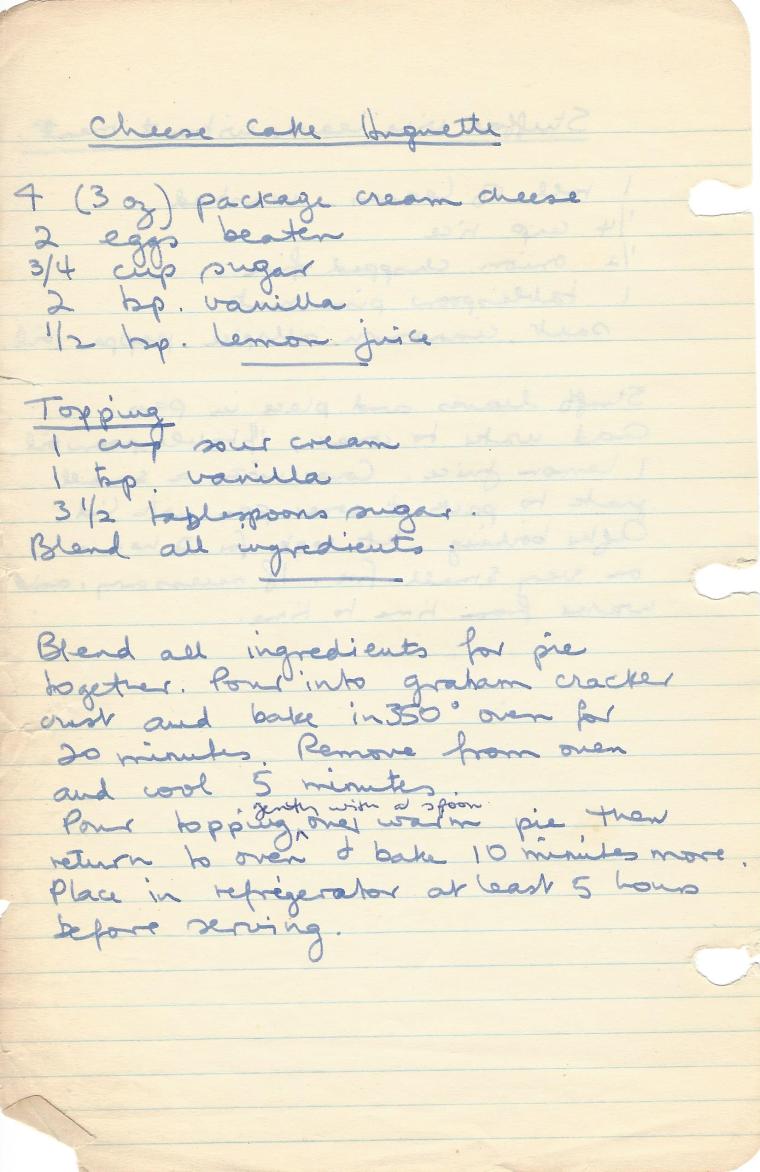 Cheese Cake Huguette
4 (3 oz) package cream cheese
2 eggs beaten
3/4 cup sugar
2 tsp. vanilla
1/2 tsp. lemon juice
Topping
1 cup sour cream
1 tsp. vanilla
3 1/2 tablespoons sugar.
Blend all ingredients.
Blend all ingredients for pie
together. Pour into graham cracker
crust and bake in 350° oven for
20 minutes. Remove from oven
and cool 5 minutes.
gently with a spoon
Pour topping ^ over warm pie then
return to oven & bake 10 minutes more.
Place in refrigerator at least 5 hours
before serving.